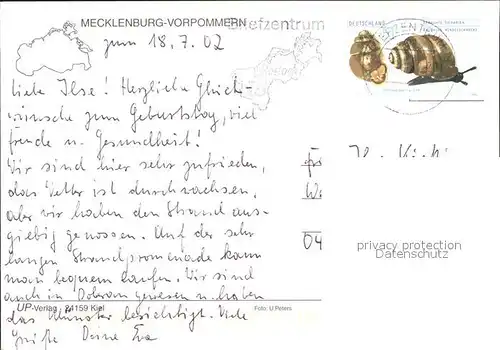 MECKLENBURG-VORPOMMERN
Briefzentrum
DEUTSCHLAND
zum 18.7.02
Liebe Ilse! Herzliche Glück-
wünsche zum Geburtstag, viel
Freude u. Gesundheit!
Wir sind hier sehr zufrieden,
das Wetter ist durchwachsen,
aber wir haben den Strand aus-
giebig genossen. Auf der sehr
langen Strandpromenade kann
man bequem laufen. Wir sind
auch in Doberan gewesen u. haben
das Münster besichtigt. Viele
Grüße Deine Eva
Fr
W
04
privacy protection
Datenschutz
UP-Verlag 24159 Kiel
Foto: U.Peters